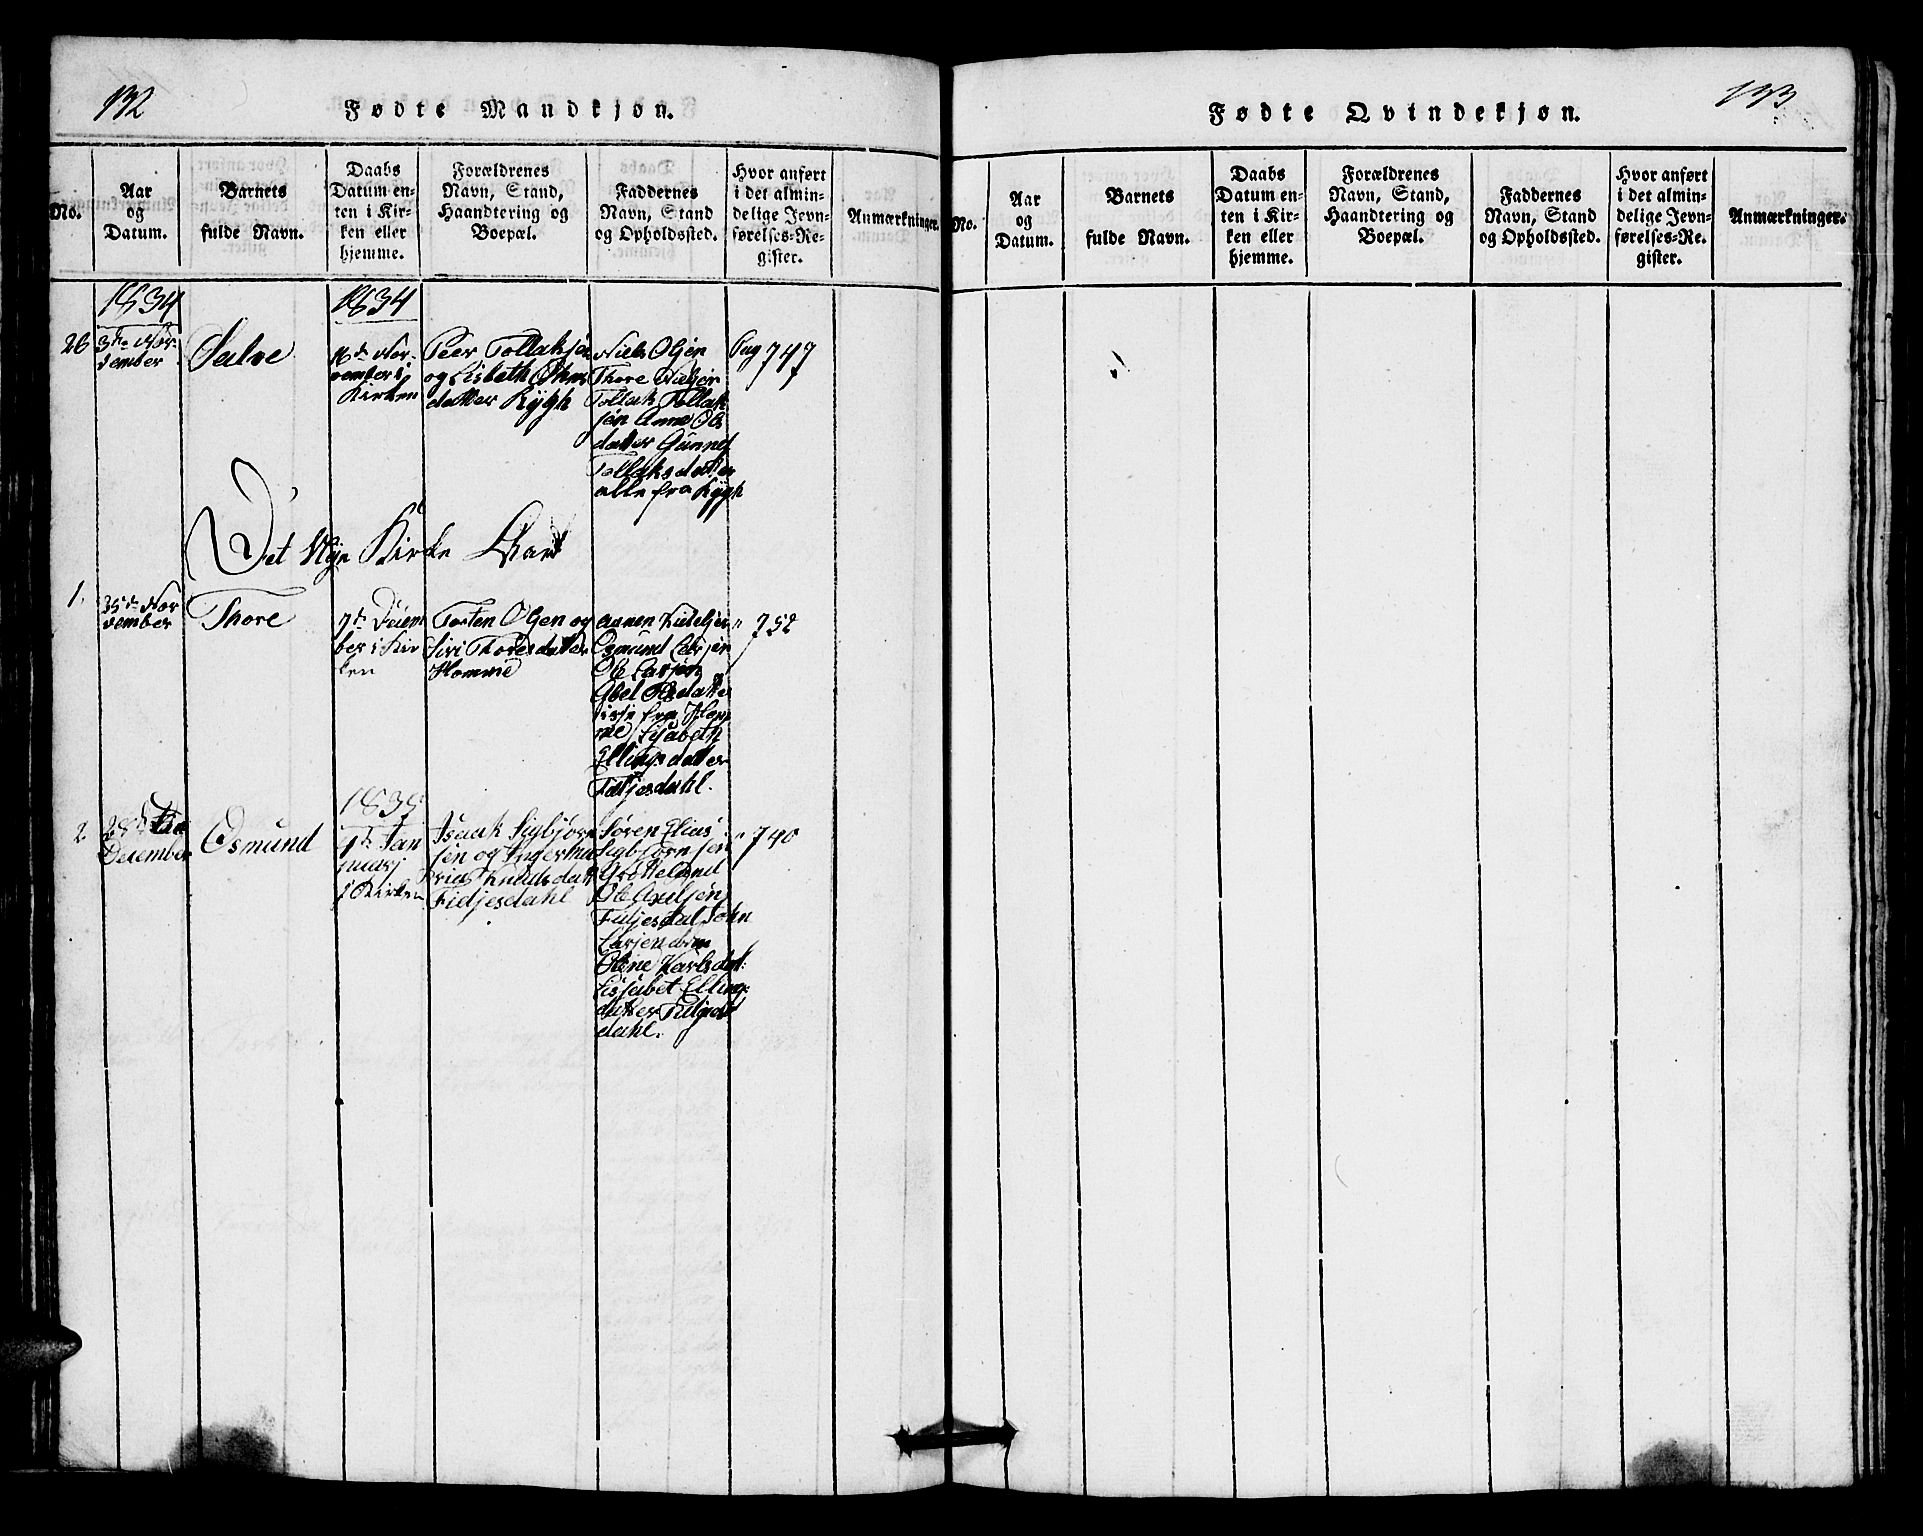 132
Fødte Mandkjøn.
No.
Aar
og
Datum.
Barnets
fulde Navn.
Daabs
Datum en-
ten i Kir-
ken eller
hjemme.
Forældrenes
Navn, Stand,
Haandtering og
Boepæl.
Faddernes
Navn, Stand
og Opholdssted.
Hvor anført
i det almin-
delige Jevn-
førelses-Re-
gister.
Anmærkninger.
1834
1834
26
3die Nov-
vember
Salve
16de Nov-
vember i
Kirken
Peer Tollaksen
og Lisbeth Ols-
datter Rygh
Niels Olsen
Thore Nielsen
Tollak Tollak
sen Anne Ols
datter Gunnel
Tollaksdatter
alle fra Rygh
Pag 747
Det Nye Kirke Aar
1.
25de Nov
vember
Thore
7de Decem
ber i Kir
ken
Torsten Olsen og
Siri Thoresdatter
Homme
Osmund Larsen
Ole Larsen
Abel
fra Hom
me Lisabeth
Ellingsdatter
Fidjesdahl.
" 752
1835
2
28de
December
Osmund
4de Jan
nuarj
i Kirken
Isaak Sigbjørn
sen og Inger Ma
ria Knudsdatt
Fidjesdahl
Søren Elias
Sigbjørnsen
Grotteland
Ole Axelsen
Fidjesdal John
Larsen
Oline Karlsdat:
Lisjabet Elling:
datter Fidjes
dahl.
" 740
133
Fødte Qvindekjøn.
No.
Aar
og
Datum.
Barnets
fulde Navn.
Daabs
Datum en-
ten i Kir-
ken eller
hjemme.
Forældrenes
Navn, Stand,
Haandtering og
Boepæl.
Faddernes
Navn, Stand
og Opholdssted.
Hvor anført
i det almin-
delige Jevn-
førelses-Re-
gister.
Anmærkninger.